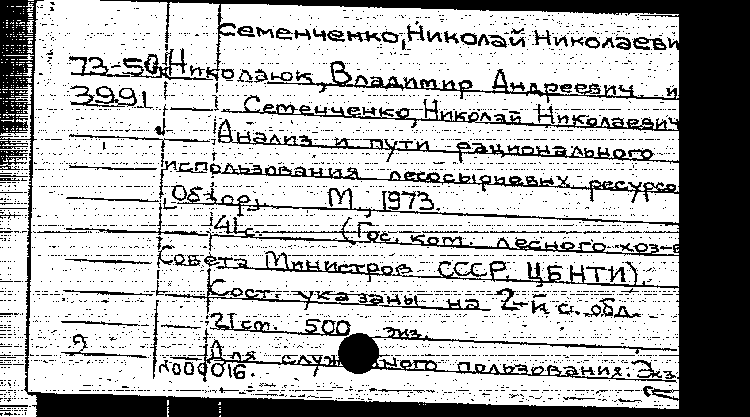 Семенченко, Николай Николаеви
73-50 Николаюк, Владимир Андреевич и
3991 Семенченко, Николай Николаевич
Анализ и пути рационального
использования лесосырьевых ресурсо
(Обзор). М., 1973.
41 с. (Гос. ком. лесного хоз-в
Совета Министров СССР. ЦБНТИ).
Сост. указаны на 2-й с. обл.
21 см. 500 экз.
Для служ ного пользования. Экз
№000016.